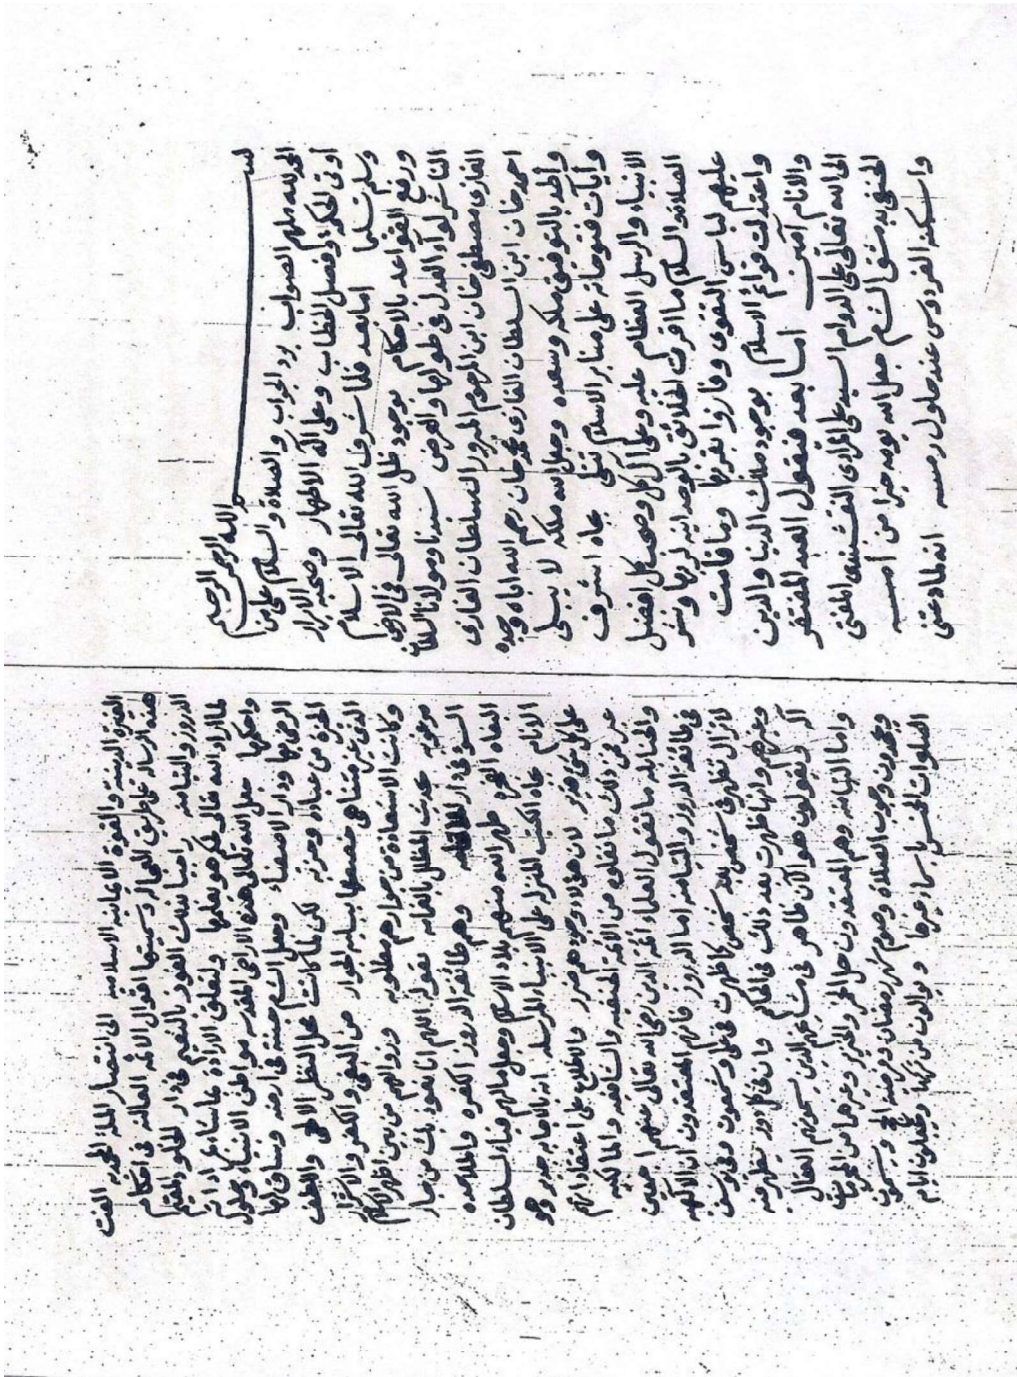 بسم الله الرحمن الرحيم
الحمد لله ملهم الصواب برد الجواب والصلاة والسلام على من
أوتي الحكمة وفصل الخطاب وعلى آله الاطهار وصحبه الابرار
وسلم تسليما اما بعد فلما شرف الله تعالى الاسلام
ورفع القواعد بالاحكام بوجود ظل الله تعالى في الارض
الناشر لوآء العدل في طولها والعرض سيدنا ومولانا السلطان
الغازي مصطفى خان ابن المرحوم المبرور السلطان الغازي
احمد خان ابن السلطان الغازي محمد خان رحم الله اباه وجده
وأيد بالتوفيق ملكه وسعده وجعل الله ملكه لا يبلى
وأيات فتوحاته على منابر الاسلام تتلى بجاه اشرف
الانبياء والرسل العظام عليه وعلى آل كل وصحب كل افضل
الصلاة والسلام ما اقرت الخلائق بالوحدانيه لربها ونشر
عليهم لباس التقوى وفازوا بقربها وما قامت
واعتدلت قوائم الاسلام بوجود ملاك الدنيا والدين
والانام آمين اما بعد فيقول العبد المفتقر
الى الله تعالى على الدوام السيد على المرادي النقشبندي المفتي
الحنفي بدمشق الشام جعل الله يومه خيرا من أمسه
واسكنه الفردوس عند حلول رمسه انه لما دعتني
الغيرة الدينيه والقوة الايمانيه الاسلاميه الى انتصار الملة المحمديه الفت
هذه الرسالة على طريق العجاله وسميتها اقوال الائمه العاليه في احكام
الدروز والتيامنه راجيا بذلك الفوز بالنعيم في دار الخلد المقيم
لما اراد الله تعالى بمكرهم وبغيها ولتعلق الاراده بما شاء من اذاته
واحكمها جعل الله تعالى هذه الاراضي المقدسه مواطن الانبياء وحلول
الوحي بها ودار الاصفياء وجعل الشام جنته في ارضه وساق لها
الخيرة من عباده وحزبه لكن لما كانت محل النظر الالهي واللطف
الخفي غير متناهي خصصها ببليه الجوار من البغي والكفر والاشرار
وكانت الاستعاذة من جوارهم مطلوبه وزوالهم من بين اظهر الاسلام
مرغوبه بحديث المظلل بالغمامه بقوله اللهم انا نعوذ بك من جار
السوء في دار المقامه وهم طائفة الدروز الكفره والملاحده
البغاه الفجره طهر الله منهم بلاد الاسلام وجعل مالهم فيئا لسلطان
الانام بجاه الكتب المنزله على الأنبياء المرسله انه بالاجابه جدير وهو
على كل شيء قدير لان هؤلاء وجودهم ضرر والاطلاع على اعتقاداتهم
عبر فمن ذلك ما نقلوه من الأئمة الحنفيه والشافعيه والمالكيه
والحنابله ما تقول العلماء أئمة الدين رضي الله تعالى عنهم اجمعين
في طائفة الدروز والتيامنه اما الدروز فانهم المعتقدون ان الآلهيه
لا تزال تظهر في شخص بعد شخص كما ظهرت في علي وشمعون ويوسف
وغيرهم وانها ظهرت بعد ذلك في الحاكم وان في كل دور يظهر منه
آلـه ويقولون هو الآن ظاهر في مشايخهم الذين يسمونهم العقال
واما التيامنه وهم المعتقدون حل الخمر والخنزير وغيرهما من المحرمات
ويجحدون وجوب الصلاة وصوم شهر رمضان وفرضية الحج ويسمون
الصلوات الخمس باسماء غيرها ويوالون من تركها ويجعلون الايام